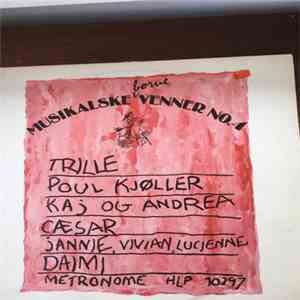 børne
MUSIKALSKE VENNER NO. 1
TRILLE
POUL KJØLLER
KAJ OG ANDREA
CÆSAR
JANNIE, VIVIAN, LUCIENNE
DAIMI
METRONOME HLP 10297